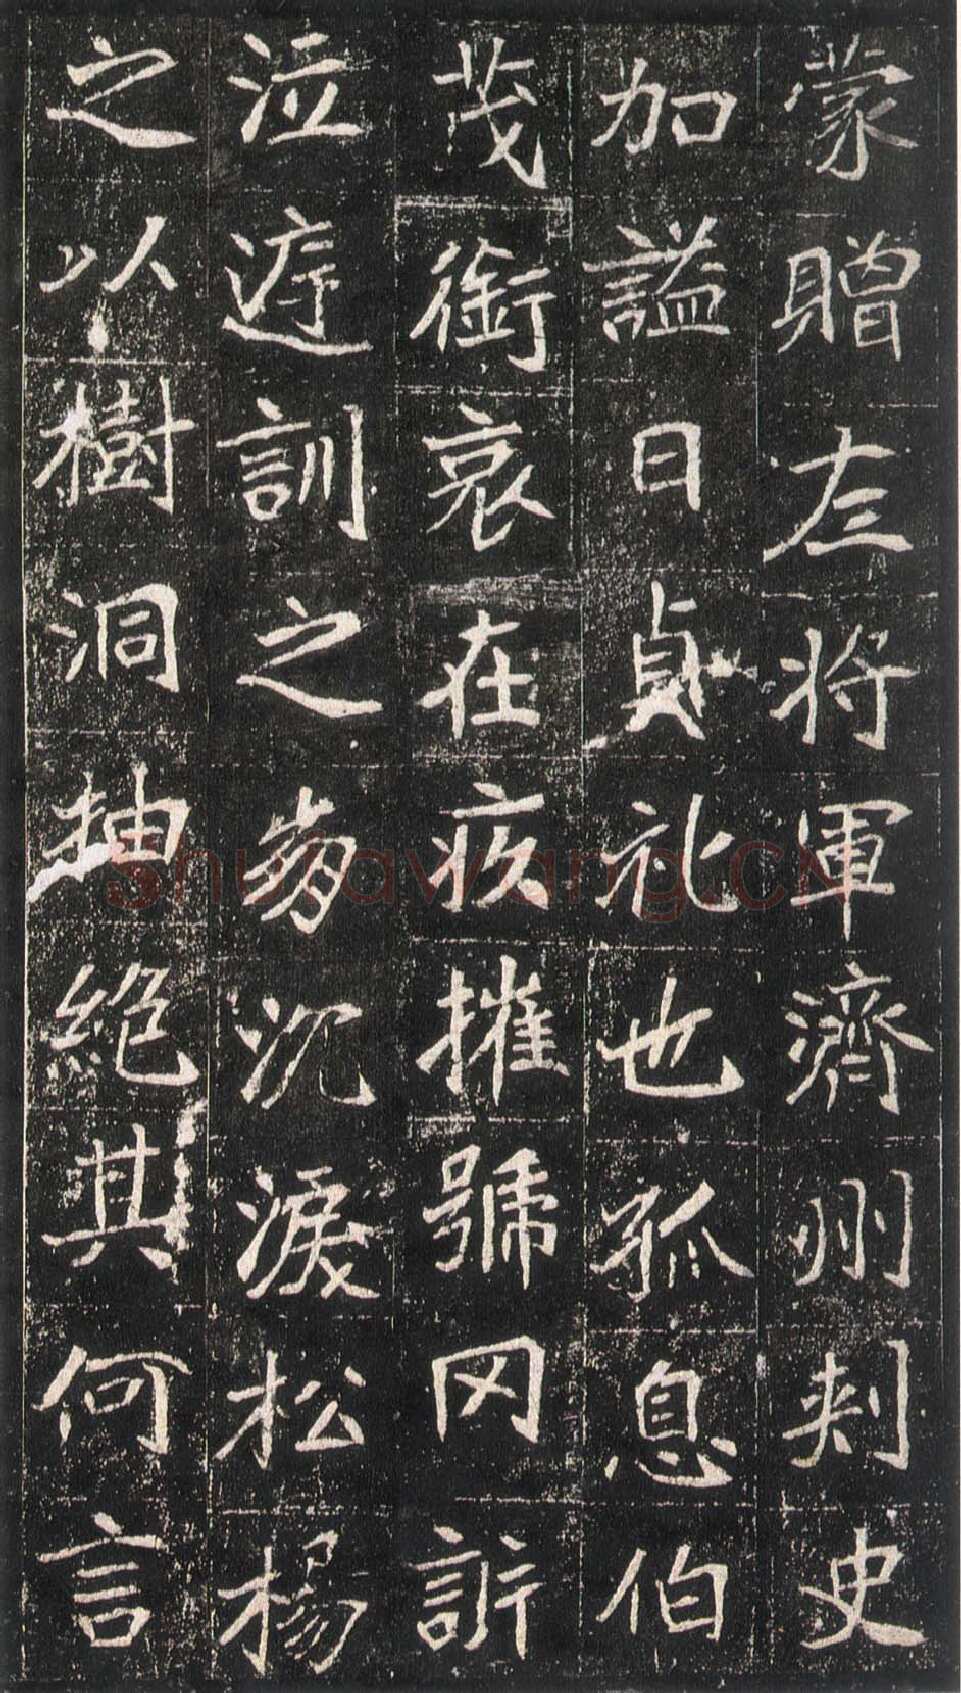 蒙贈左将軍濟州刾史
加謚曰貞礼也孤息伯
茂銜哀在疚摧號罔訴
泣遵訓之勿沉淚松楊
之以樹洞抽絶其何言
shufawang.CN